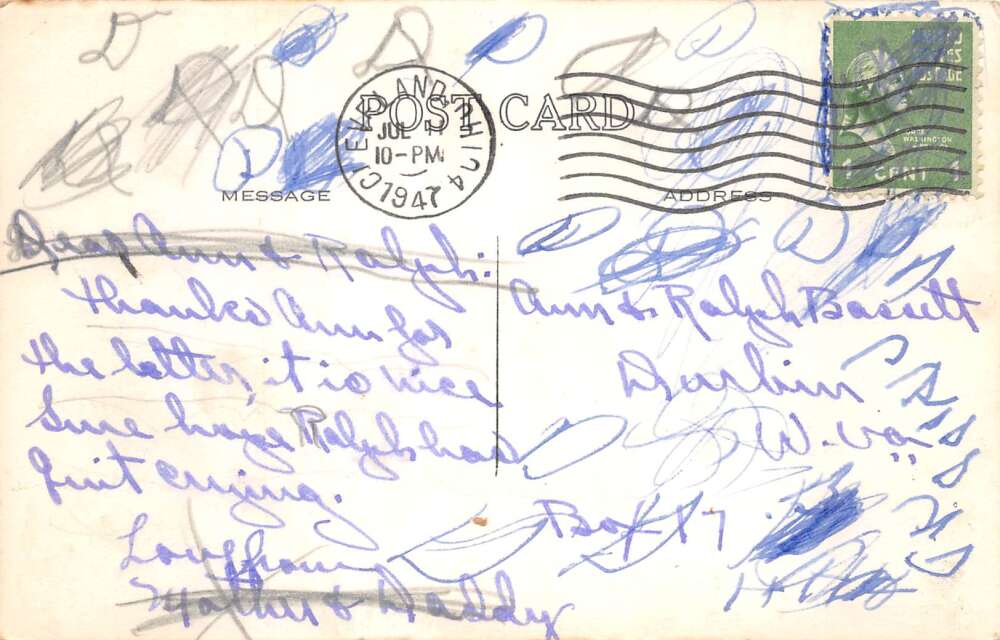 POST CARD
CLEVELAND, OHIO 4
JUL
10-PM
1947
MESSAGE
ADDRESS
WASHINGTON
1 CENT 1
Dear Ann & Ralph:
thanks Ann for
the letter, it is nice
Sure hope Ralph has
Quit crying.
Love from
Mother & Daddy
Ann & Ralph Bassett
Durbin
W. Va.
Box 87